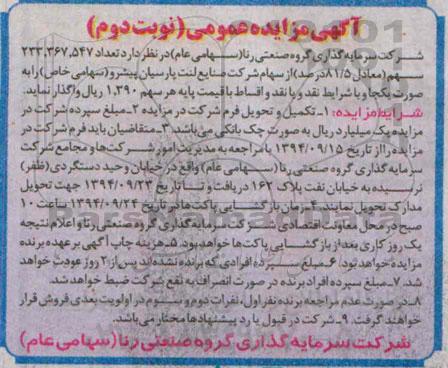 آگهی مزایده عمومی (نوبت دوم)
شرکت سرمایه گذاری گروه صنعتی رنا(سهامی عام) در نظر دارد تعداد ۲۳۳,۳۶۷,۵۴۷
سهم (معادل ۸۱/۵ درصد) از سهام شرکت صنایع لنت پارسیان پیشرو (سهامی خاص) را به
صورت یکجا و با شرایط نقد و یا نقد و اقساط با قیمت پایه هر سهم ۱,۳۹۰ ریال واگذار نماید.
شرایط مزایده: ۱- تکمیل و تحویل فرم شرکت در مزایده ۲- مبلغ سپرده شرکت در
مزایده یک میلیارد ریال به صورت چک بانکی می باشد. ۳- متقاضیان باید فرم شرکت در
مزایده را از تاریخ ۱۳۹۴/۰۹/۱۵ با مراجعه به مدیریت امور شرکت ها و مجامع شرکت
سرمایه گذاری گروه صنعتی رنا (سهامی عام) واقع در خیابان وحید دستگردی (ظفر)
نرسیده به خیابان نفت پلاک ۱۶۲ دریافت و تا تاریخ ۱۳۹۴/۰۹/۲۳ جهت تحویل
مدارک تحویل نمایند. ۴- زمان بازگشایی پاکت ها در تاریخ ۱۳۹۴/۰۹/۲۴ ساعت ۱۰
صبح در محل معاونت اقتصادی شرکت سرمایه گذاری گروه صنعتی رنا و اعلام نتیجه
یک روز کاری بعد از بازگشایی پاکت ها خواهد بود. ۵- هزینه چاپ آگهی بر عهده برنده
مزایده خواهد بود. ۶- مبلغ سپرده افرادی که برنده نشده اند پس از ۲ روز عودت خواهد
شد. ۷- مبلغ سپرده افراد برنده در صورت انصراف به نفع شرکت ضبط خواهد شد.
۸- در صورت عدم مراجعه برنده نفر اول، نفرات دوم و سوم در اولویت بعدی فروش قرار
خواهند گرفت. ۹- شرکت در قبول یا رد پیشنهادها مختار می باشد.
شرکت سرمایه گذاری گروه صنعتی رنا (سهامی عام)
ParsNamadData